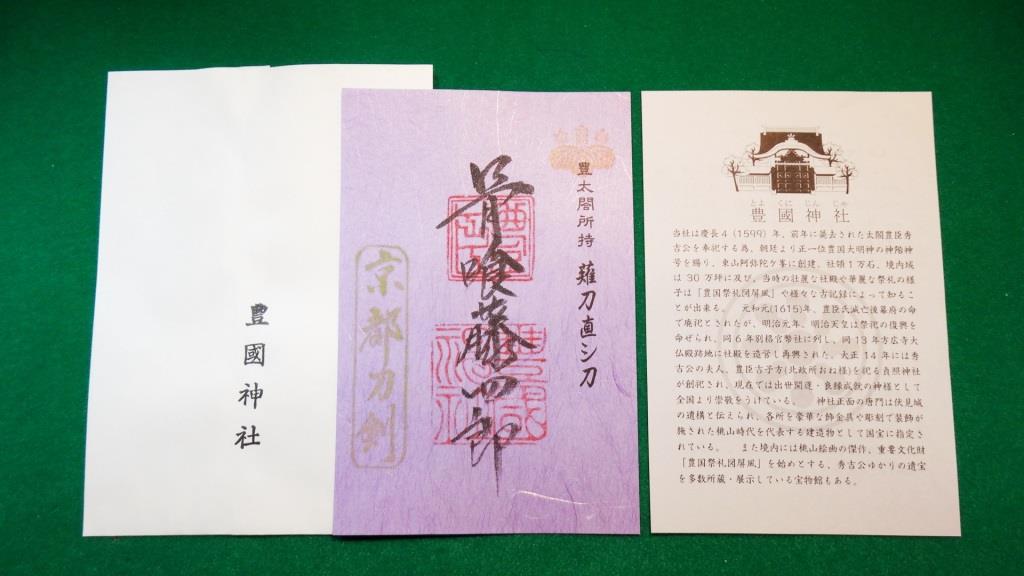 豊國神社
豊太閤所持 薙刀直シ刀
骨喰藤四郎
京都刀剣
とよくにじんじゃ
豊國神社
当社は慶長4(1599)年、前年に薨去された太閤豊臣秀
吉公を奉祀する為、朝廷より正一位豊国大明神の神階神
号を賜り、東山阿弥陀ケ峯に創建。社領1万石、境内域
は30万坪に及び、当時の壮麗な社殿や華麗な祭礼の様
子は「豊国祭礼図屏風」や様々な古記録によって知るこ
とが出来る。 元和元(1615)年、豊臣氏滅亡後幕府の命
で廃祀とされたが、明治元年、明治天皇は祭祀の復興を
命ぜられ、同6年別格官幣社に列し、同13年方広寺大
仏殿跡地に社殿を造営し再興された。大正14年には秀
吉公の夫人、豊臣吉子方(北政所おね様)を祀る貞照神社
が創祀され、現在では出世開運・良縁成就の神様として
全国より崇敬をうけている。 神社正面の唐門は伏見城
の遺構と伝えられ、各所を豪華な飾金具や彫刻で装飾が
施された桃山時代を代表する建造物として国宝に指定さ
れている。 また境内には桃山絵画の傑作、重要文化財
「豊国祭礼図屏風」を始めとする、秀吉公ゆかりの遺宝
を多数所蔵・展示している宝物館もある。